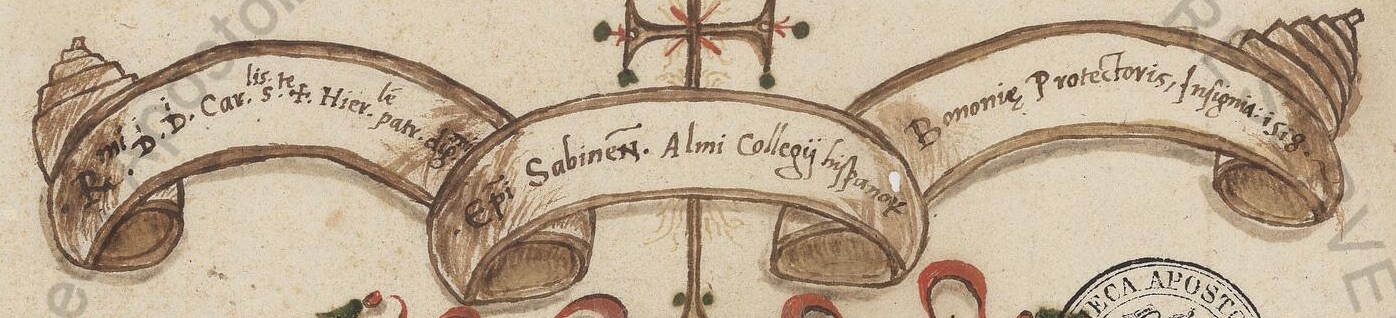 R.mi D.i D. Car.lis S.te ✝. Hier. patr. dig.mi
Ep̄i Sabineñ. Almi Collegij hispanoꝝ
Bononię Protectoris, Insignia. i5i9.
ECA APOSTO